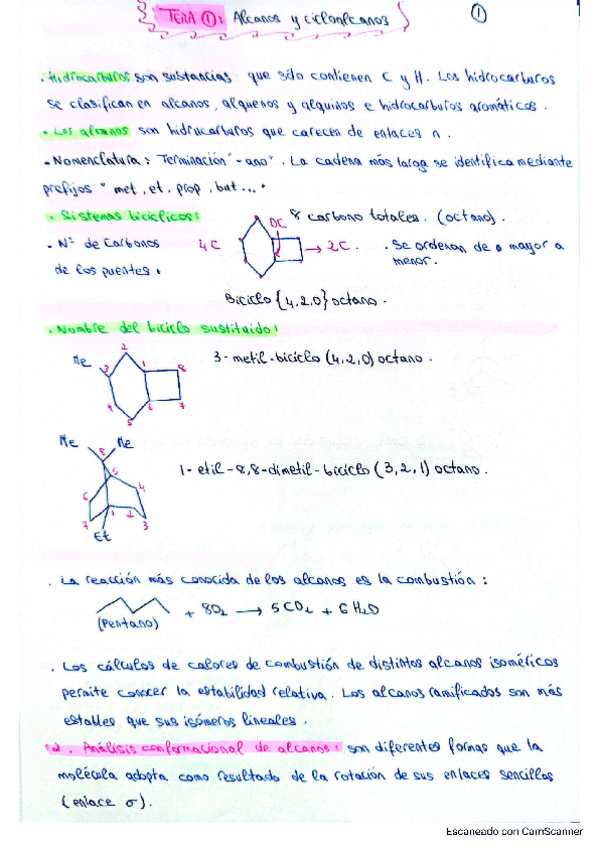 TEMA ①: Alcanos y cicloalcanos
1
. Hidrocarburos son sustancias que sólo contienen C y H. Los hidrocarburos
se clasifican en alcanos, alquenos y alquinos e hidrocarburos aromáticos.
. Los alcanos son hidrocarburos que carecen de enlaces π.
- Nomenclatura: Terminación "-ano". La cadena más larga se identifica mediante
prefijos "met, et, prop, but..."
. Sistemas bicíclicos:
8 carbono totales. (octano).
0C
. Nº de Carbonos
4C
→ 2C.
. Se ordenan de mayor a
menor.
de los puentes.
Biciclo {4,2,0} octano.
. Nombre del biciclo sustituido:
Me
3-metil-biciclo (4,2,0) octano.
2
3
1
8
4
6
7
5
Me
Me
8
1-etil-8,8-dimetil-biciclo (3,2,1) octano.
5
4
6
7
1
2
3
Et
. La reacción más conocida de los alcanos es la combustión:
+ 8O2 → 5CO2 + 6H2O
(Pentano)
. Los cálculos de calores de combustión de distintos alcanos isoméricos
permite conocer la estabilidad relativa. Los alcanos ramificados son más
estables que sus isómeros lineales.
2. Análisis conformacional de alcanos: son diferentes formas que la
molécula adopta como resultado de la rotación de sus enlaces sencillos
(enlace σ).
Escaneado con CamScanner